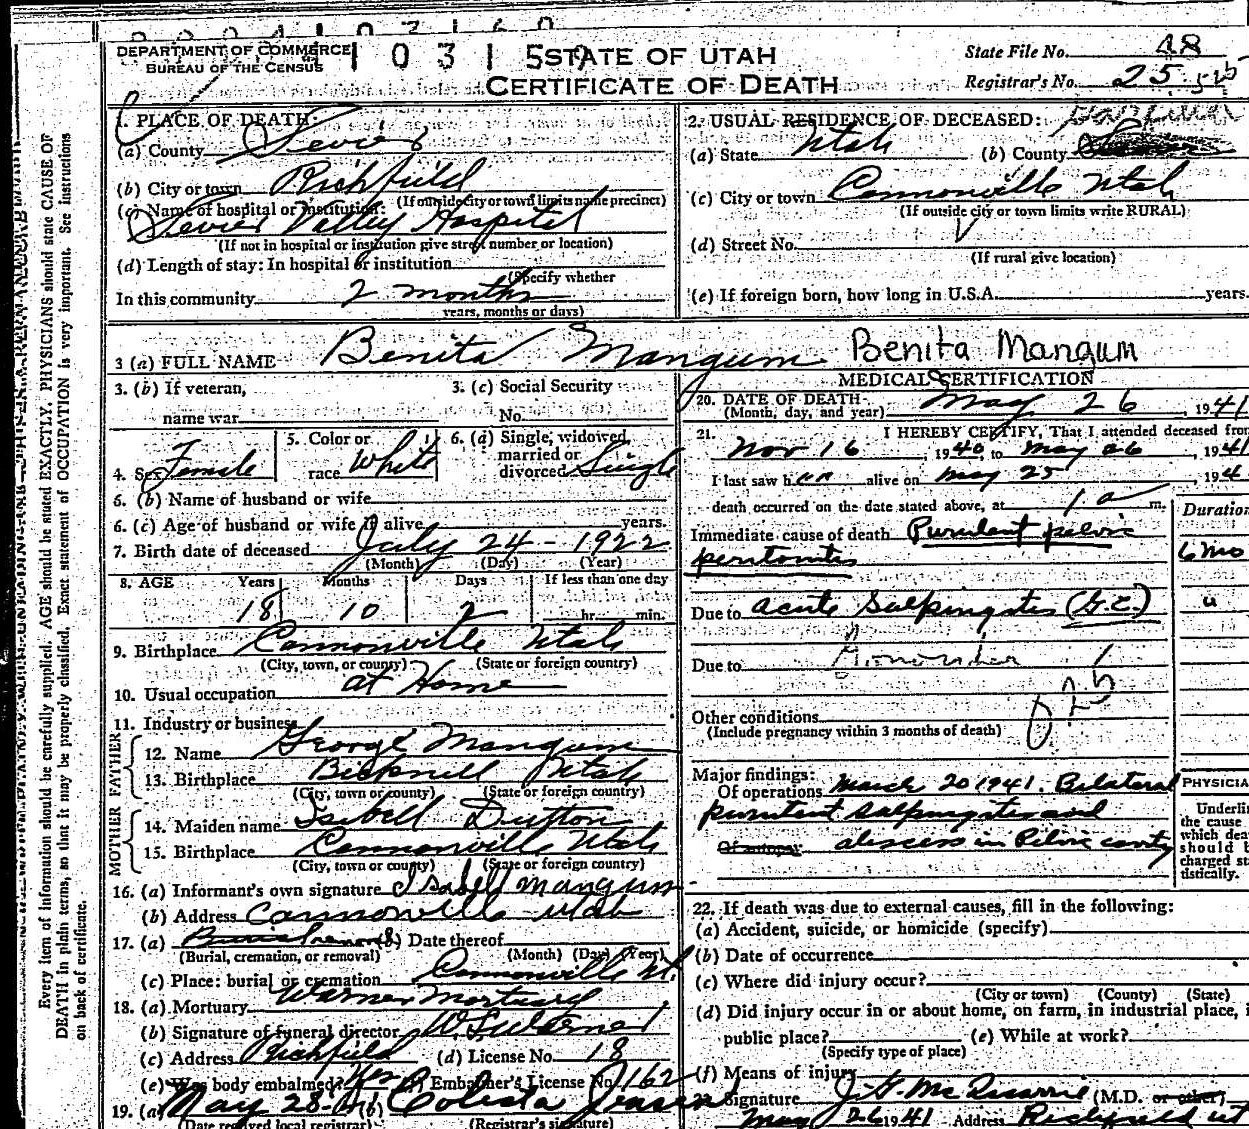 DEPARTMENT OF COMMERCE
BUREAU OF THE CENSUS
STATE OF UTAH
CERTIFICATE OF DEATH
State File No. 48
Registrar's No. 25
1. PLACE OF DEATH:
(a) County Sevier
(b) City or town Richfield
(If outside city or town limits name precinct)
(c) Name of hospital or institution:
Sevier Valley Hospital
(If not in hospital or institution give street number or location)
(d) Length of stay: In hospital or institution
(Specify whether
In this community 2 months
years, months or days)
2. USUAL RESIDENCE OF DECEASED:
(a) State Utah (b) County Garfield
(c) City or town Cannonville Utah
(If outside city or town limits write RURAL)
(d) Street No.
(If rural give location)
(e) If foreign born, how long in U.S.A. years.
3 (a) FULL NAME Benita Mangum Benita Mangum
3. (b) If veteran,
name war
3. (c) Social Security
No.
4. Sex Female
5. Color or
race White
6. (a) Single, widowed,
married or
divorced Single
6. (b) Name of husband or wife
6. (c) Age of husband or wife if alive years.
7. Birth date of deceased July 24 - 1922
(Month) (Day) (Year)
8. AGE Years Months Days If less than one day
18 10 2 hr. min.
9. Birthplace Cannonville Utah
(City, town, or county) (State or foreign country)
10. Usual occupation at Home
11. Industry or business
FATHER
12. Name George Mangum
13. Birthplace Bicknell Utah
(City, town or county) (State or foreign country)
MOTHER
14. Maiden name Isabell Dutton
15. Birthplace Cannonville Utah
(City, town or county) (State or foreign country)
16. (a) Informant's own signature Isabell Mangum
(b) Address Cannonville Utah
17. (a) Burial removal (b) Date thereof
(Burial, cremation, or removal) (Month) (Day) (Year)
(c) Place: burial or cremation Cannonville Ut.
18. (a) Mortuary Warner Mortuary
(b) Signature of funeral director W. S. Warner
(c) Address Richfield (d) License No. 18
(e) Was body embalmed? Yes (f) Embalmer's License No. 162
19. (a) May 28-41 (b) Celesta Jensen
(Date received local registrar) (Registrar's signature)
MEDICAL CERTIFICATION
20. DATE OF DEATH
(Month, day, and year) May 26, 1941
21. I HEREBY CERTIFY, That I attended deceased from
Nov 16, 1940, to May 26, 1941
I last saw her alive on May 25, 194
death occurred on the date stated above, at 1 a m.
Duration
Immediate cause of death Purulent pelvic
peritonitis 6 mo
Due to acute Salpingitis (G.C.) "
Due to
Other conditions
(Include pregnancy within 3 months of death)
Major findings:
Of operations March 20 1941. Bilateral
purulent salpingitis and
Of autopsy abscess in Pelvic cavity
PHYSICIA
Underlin
the cause
which dea
should b
charged st
tistically.
22. If death was due to external causes, fill in the following:
(a) Accident, suicide, or homicide (specify)
(b) Date of occurrence
(c) Where did injury occur?
(City or town) (County) (State)
(d) Did injury occur in or about home, on farm, in industrial place, i
public place? (e) While at work?
(Specify type of place)
(f) Means of injury
23. Signature J. G. McQuarrie (M.D. or other)
May 26 1941 Address Richfield Ut
Every item of information should be carefully supplied. AGE should be stated EXACTLY. PHYSICIANS should state CAUSE OF
DEATH in plain terms, so that it may be properly classified. Exact statement of OCCUPATION is very important. See instructions
on back of certificate.